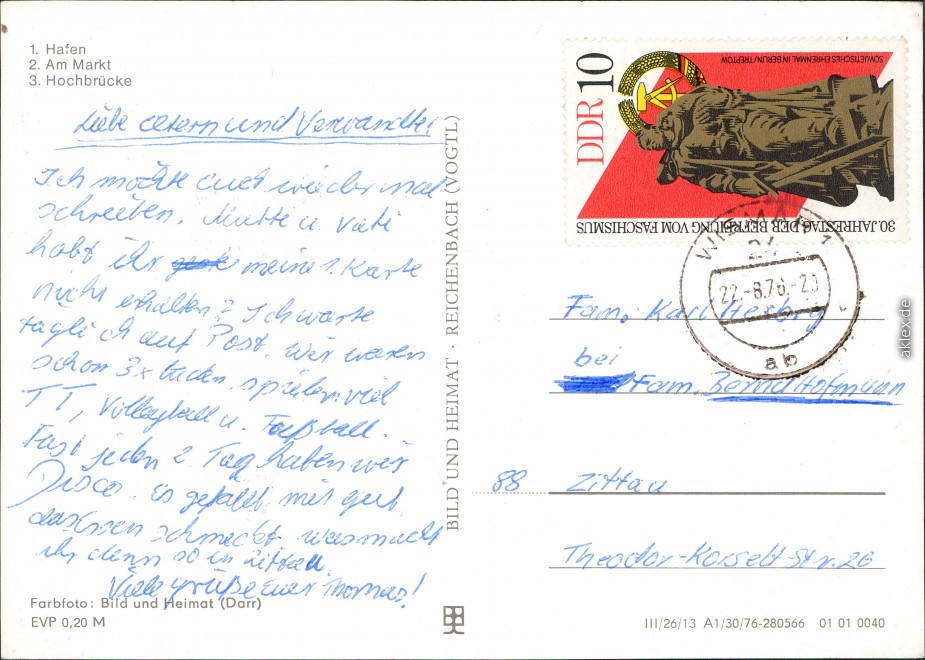 1. Hafen
2. Am Markt
3. Hochbrücke
Liebe Eltern und Verwandte!
Ich möchte euch wieder mal
schreiben. Mutti u. Vati
habt ihr meine 1. Karte
nicht erhalten? Ich warte
täglich auf Post. Wir waren
schon 3x baden, spielen viel
TT, Volleyball u. Fußball.
Fast jeden 2. Tag haben wir
Disco. es gefällt mir gut.
das Essen schmeckt. was macht
ihr denn so in Zittau.
Viele grüße Euer Thomas!
Farbfoto: Bild und Heimat (Darr)
EVP 0,20 M
BILD UND HEIMAT · REICHENBACH (VOGTL)
DDR 10
SOWJETISCHES EHRENMAL IN BERLIN/TREPTOW
30. JAHRESTAG DER BEFREIUNG VOM FASCHISMUS
WISMAR 1
24
22.-8.76.-20
ab
Fam. Karl
bei
Fam. Bernd Hofmann
88 Zittau
Theodor-Korselt-Str. 26
III/26/13 A1/30/76-280566 01 01 0040
aklex.de